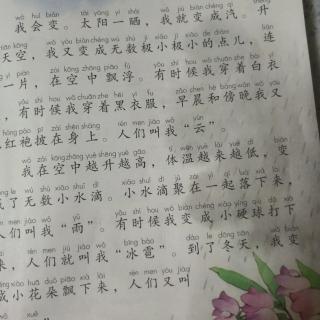 wǒ huì biàn tài yáng yí shài wǒ jiù biàn chéng qì shēng
我会变。太阳一晒,我就变成汽。升
tiān kōng wǒ yòu biàn chéng wú shù jí xiǎo jí xiǎo de diǎnr lián
天空,我又变成无数极小极小的点儿,连
yí piàn zài kōng zhōng piāo fú yǒu shí hou wǒ chuān zhe bái yī
一片,在空中飘浮。有时候我穿着白衣
yǒu shí hou wǒ chuān zhe hēi yī fu zǎo chén hé bàng wǎn wǒ yòu
,有时候我穿着黑衣服,早晨和傍晚我又
hóng páo pī zài shēn shang rén men jiào wǒ yún
红袍披在身上。人们叫我“云”。
wǒ zài kōng zhōng yuè shēng yuè gāo tǐ wēn yuè lái yuè dī biàn
我在空中越升越高,体温越来越低,变
le wú shù xiǎo shuǐ dī xiǎo shuǐ dī jù zài yì qǐ luò xià lái
了无数小水滴。小水滴聚在一起落下来,
men jiào wǒ yǔ yǒu shí hou wǒ biàn chéng xiǎo yìng qiú dǎ xià
们叫我“雨”。有时候我变成小硬球打下
rén men jiù jiào wǒ bīng báo dào le dōng tiān wǒ biàn
来,人们就叫我“冰雹”。到了冬天,我变
xiǎo huā duǒ piāo xià lái rén men yòu jiào
成小花朵飘下来,人们又叫
xuě